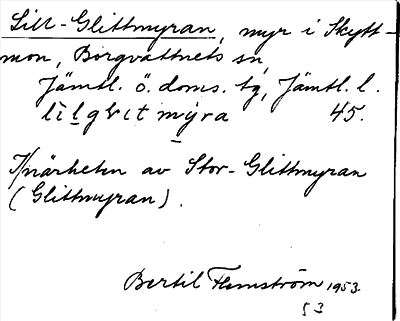 Lill-Glittmyran, myr i Skytt-
mon, Borgvattnets sn,
Jämtl. ö. doms. tg, Jämtl. l.
45.
I närheten av Stor-Glittmyran
(Glittmyran).
Bertil Flemström 1953.
53